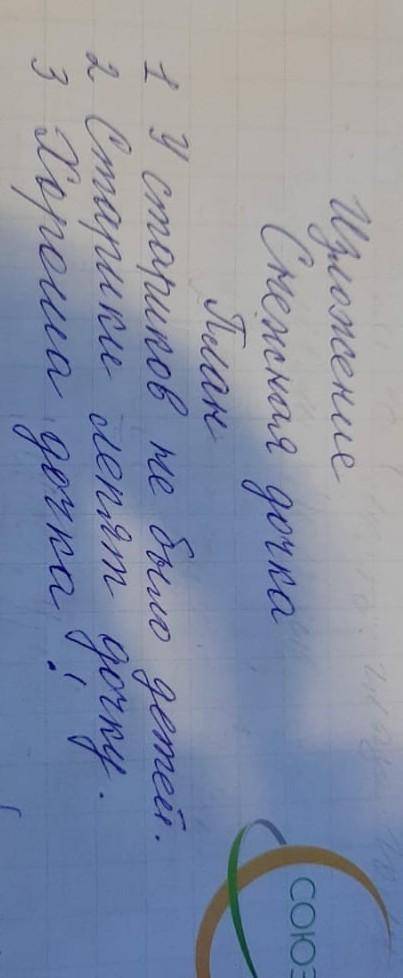 Изложение
Снежная дочка
План
1 У стариков не было детей.
2 Старики лепят дочку.
3 Хороша дочка!
СОЮЗ